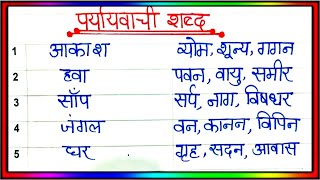 पर्यायवाची शब्द
1 आकाश व्योम, शून्य, गगन
2 हवा पवन, वायु, समीर
3 साँप सर्प, नाग, विषधर
4 जंगल वन, कानन, विपिन
5 घर गृह, सदन, आवास